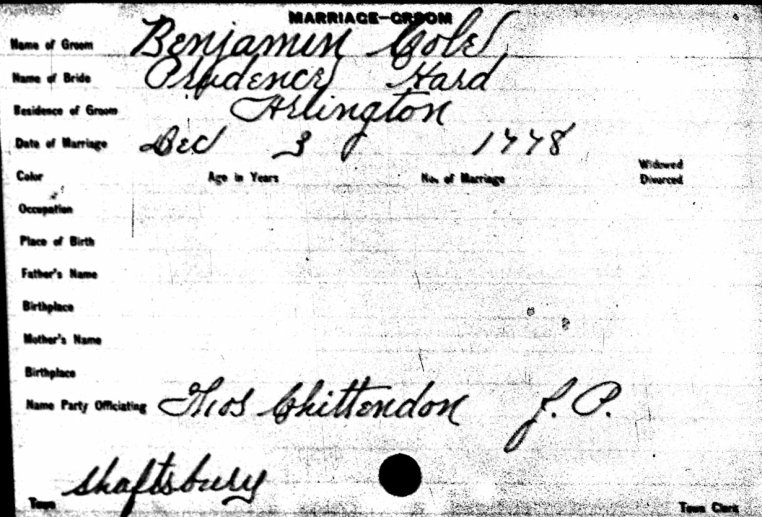 MARRIAGE-GROOM
Name of Groom Benjamin Cole
Name of Bride Prudence Hard
Residence of Groom Arlington
Date of Marriage Dec 3 1778
Color Age in Years No. of Marriage Widowed Divorced
Occupation
Place of Birth
Father's Name
Birthplace
Mother's Name
Birthplace
Name Party Officiating Thos Chittendon J. P.
Shaftsbury
Town Town Clerk